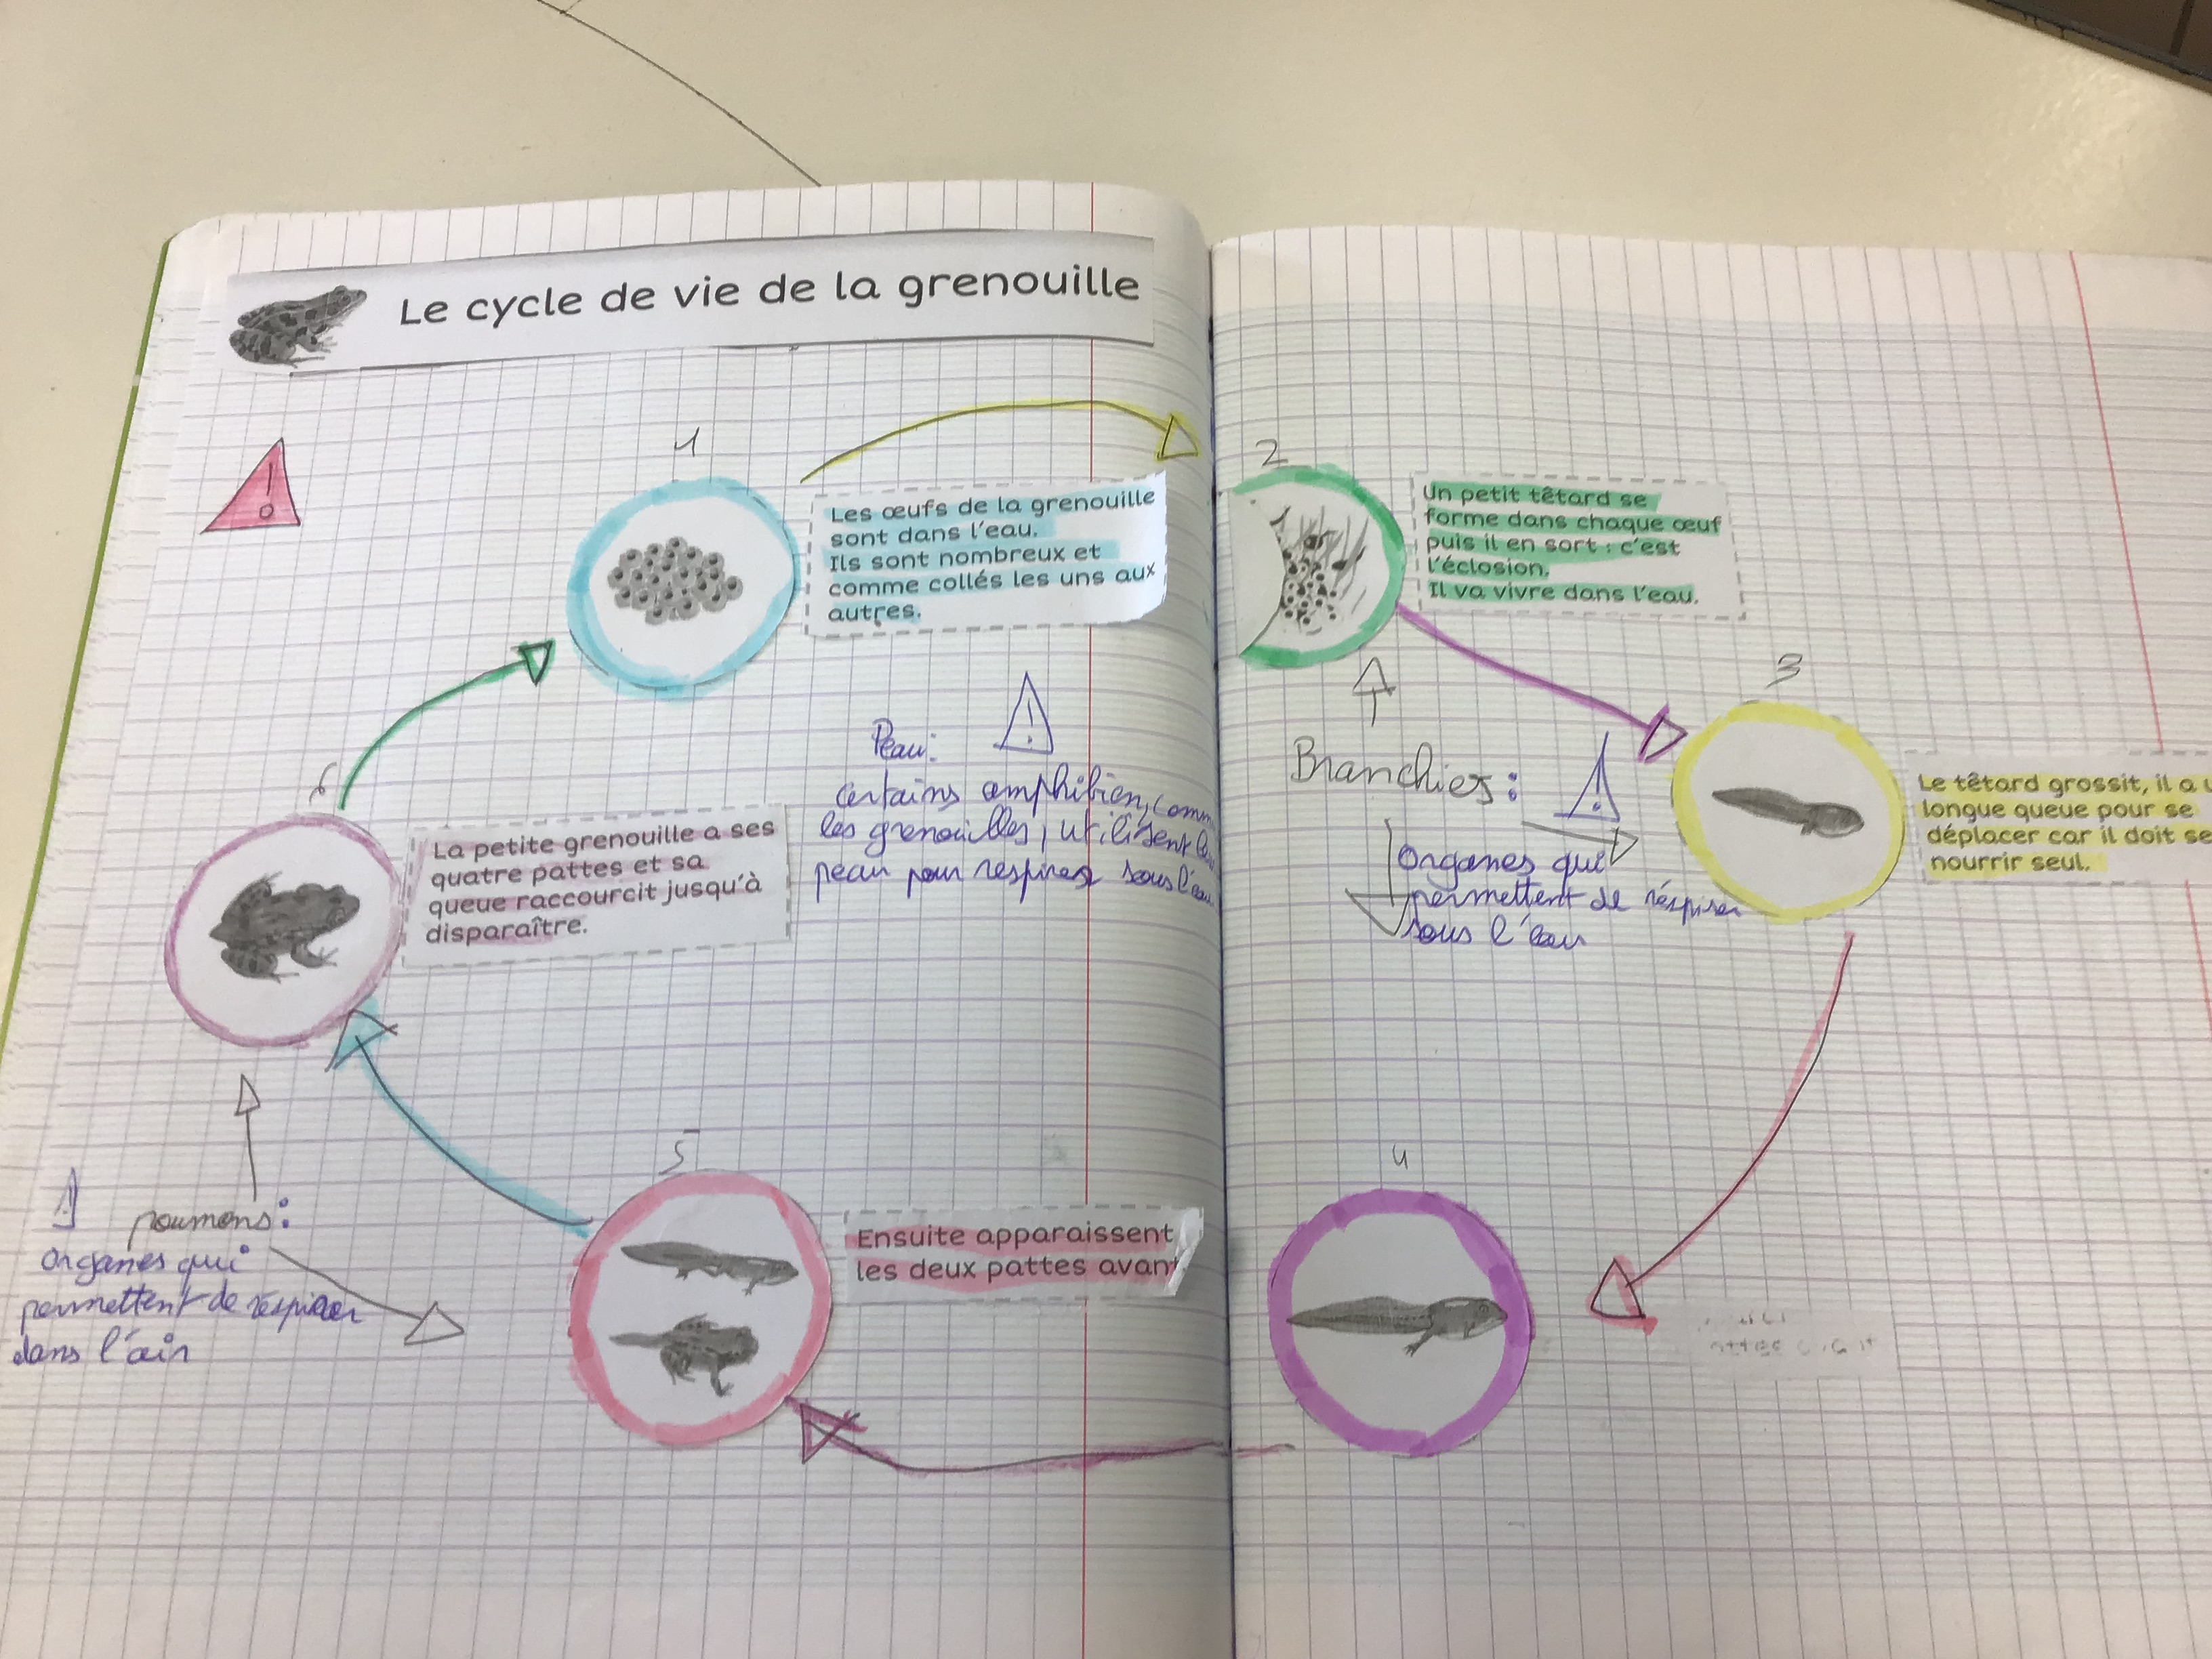 Le cycle de vie de la grenouille
!
1
Les œufs de la grenouille
sont dans l'eau.
Ils sont nombreux et
comme collés les uns aux
autres.
2
Un petit têtard se
forme dans chaque œuf
puis il en sort : c'est
l'éclosion.
Il va vivre dans l'eau.
3
Le têtard grossit, il a
longue queue pour se
déplacer car il doit se
nourrir seul.
Branchies : !
Organes qui
permettent de réspirer
sous l'eau
Peau: !
Certains amphibien, comm
les grenouilles, utilisent
peau pour respirer sous l'eau
6
La petite grenouille a ses
quatre pattes et sa
queue raccourcit jusqu'à
disparaître.
4
5
Ensuite apparaissent
les deux pattes avant
! poumons:
Organes qui
permettent de réspirer
dans l'air